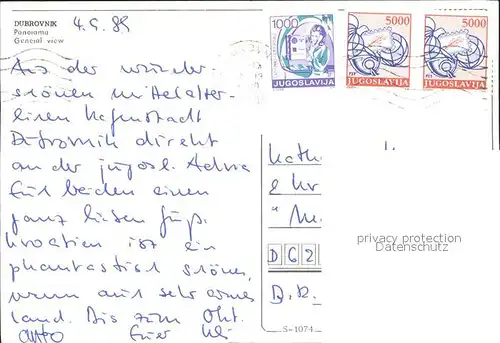 DUBROVNIK
Panorama
General view
4.9.89
1000
JUGOSLAVIJA
5000
JUGOSLAVIJA
5000
JUGOSLAVIJA
Aus der wunder-
schönen mittelalter-
lichen Hafenstadt
Dubrovnik direkt
an der jugosl. Adria
Euch beiden einen
ganz lieben Gruß.
Kroatien ist ein
phantastisch schönes,
wenn auch sehr armes
Land. Bis zum Okt.
Euer
Kath
& Kr
"M
D 6 2
privacy protection
Datenschutz
S-1074